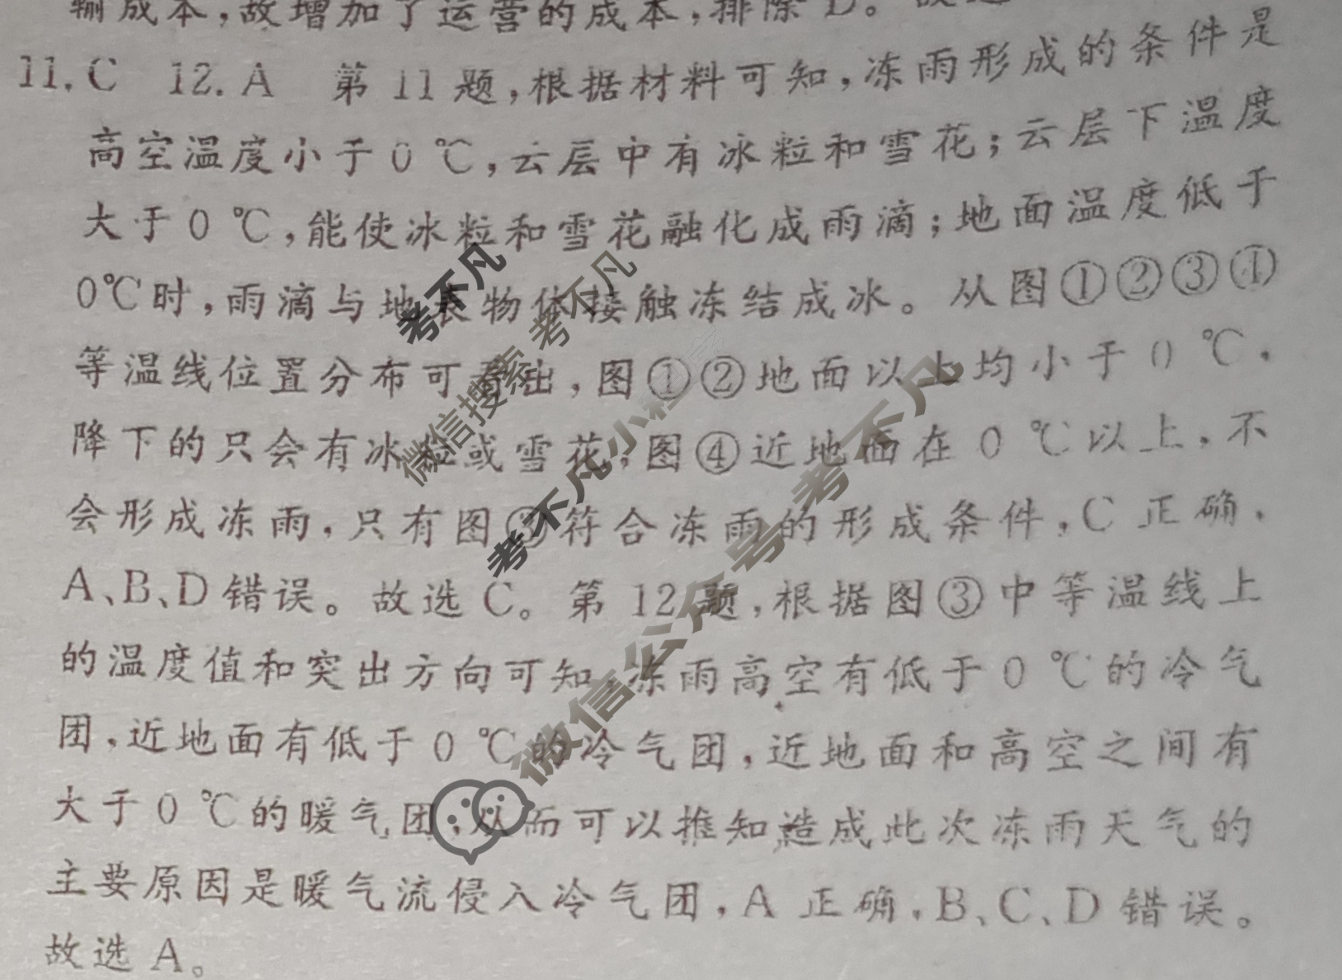 输成本,故增加了运营的成本,排除D。故选
11. C 12. A 第11题,根据材料可知,冻雨形成的条件是
高空温度小于0 ℃,云层中有冰粒和雪花;云层下温度
大于0 ℃,能使冰粒和雪花融化成雨滴;地面温度低于
0℃时,雨滴与地表物体接触冻结成冰。从图①②③④
等温线位置分布可看出,图①②地面以上均小于0 ℃,
降下的只会有冰粒或雪花;图④近地面在0 ℃以上,不
会形成冻雨,只有图③符合冻雨的形成条件,C正确,
A、B、D错误。故选C。第12题,根据图③中等温线上
的温度值和突出方向可知,冻雨高空有低于0 ℃的冷气
团,近地面有低于0 ℃的冷气团,近地面和高空之间有
大于0 ℃的暖气团,从而可以推知造成此次冻雨天气的
主要原因是暖气流侵入冷气团,A正确,B、C、D错误。
故选A。
考不凡
微信搜索 考不凡
考不凡小程序
微信公众号 考不凡